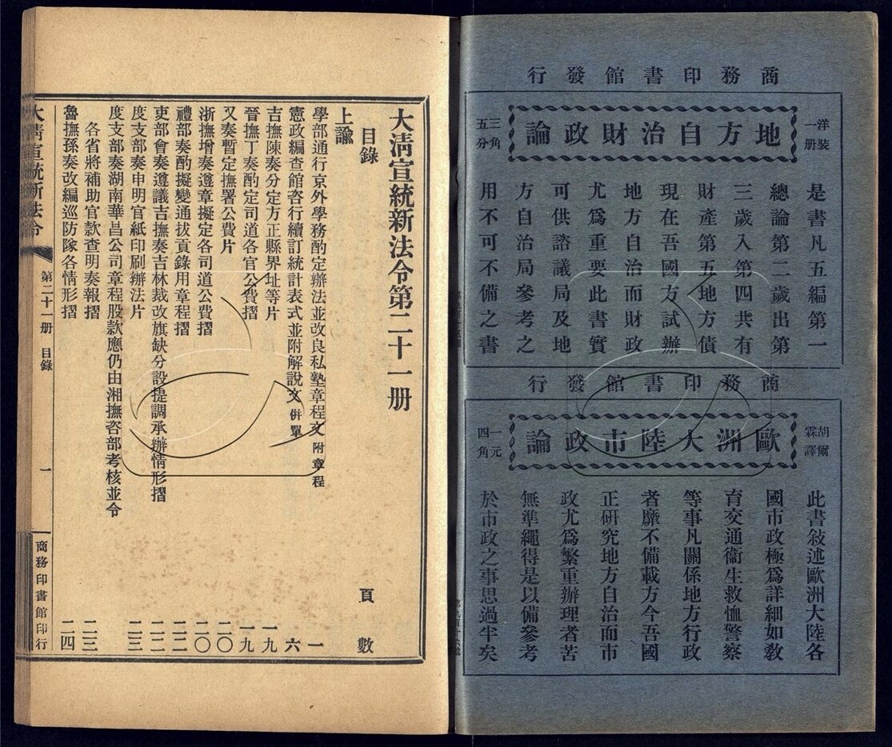 商務印書館發行
洋裝一册
地方自治財政論
三角五分
是書凡五編第一
總論第二歲出第
三歲入第四共有
財產第五地方債
現在吾國方試辦
地方自治而財政
尤爲重要此書實
可供諮議局及地
方自治局參考之
用不可不備之書
商務印書館發行
胡爾霖譯
歐洲大陸市政論
一元四角
此書敘述歐洲大陸各
國市政極爲詳細如敎
育交通衞生救恤警察
等事凡關係地方行政
者靡不備載方今吾國
正研究地方自治而市
政尤爲繁重辦理者苦
無準繩得是以備參考
於市政之事思過半矣
大淸宣統新法令第二十一册
目錄
頁數
上諭
學部通行京外學務酌定辦法並改良私塾章程文 附章程 一
憲政編查館咨行續訂統計表式並附解說文 併單 六
吉撫陳奏分定方正縣界址等片 一九
晉撫丁奏酌定司道各官公費摺 一九
又奏暫定撫署公費片 二〇
浙撫增奏遵章擬定各司道公費摺 二〇
禮部奏酌擬變通拔貢錄用章程摺 二二
吏部會奏遵議吉撫奏吉林裁改旗缺分設提調承辦情形摺 二二
度支部奏申明官紙印刷辦法片 二三
度支部奏湖南華昌公司章程股款應仍由湘撫咨部考核並令
各省將補助官款查明奏報摺 二三
魯撫孫奏改編巡防隊各情形摺 二四
大淸宣統新法令
第二十一册 目錄
一
商務印書館印行